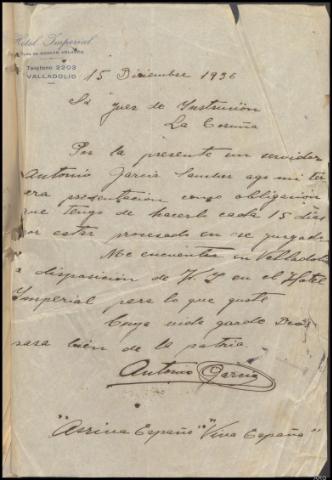 Hotel Imperial
Teléfono 2203
VALLADOLID
15 Diciembre 1936
Sr juez de Instrución
La Coruña
Por la presente un servidor
Antonio Garcia ago mi ter
cera presentacion como obligacion
que tengo de hacerlo cada 15 dias
por estar procesado en ese jurgado
Me encuentro in Valladoli
a disposicion de V. S en el Hotel
Imperial para lo que guste
Cuya vida garde Dios
para bien de la patria.
Antonio Garcia
"Arriva España" "Viva España"